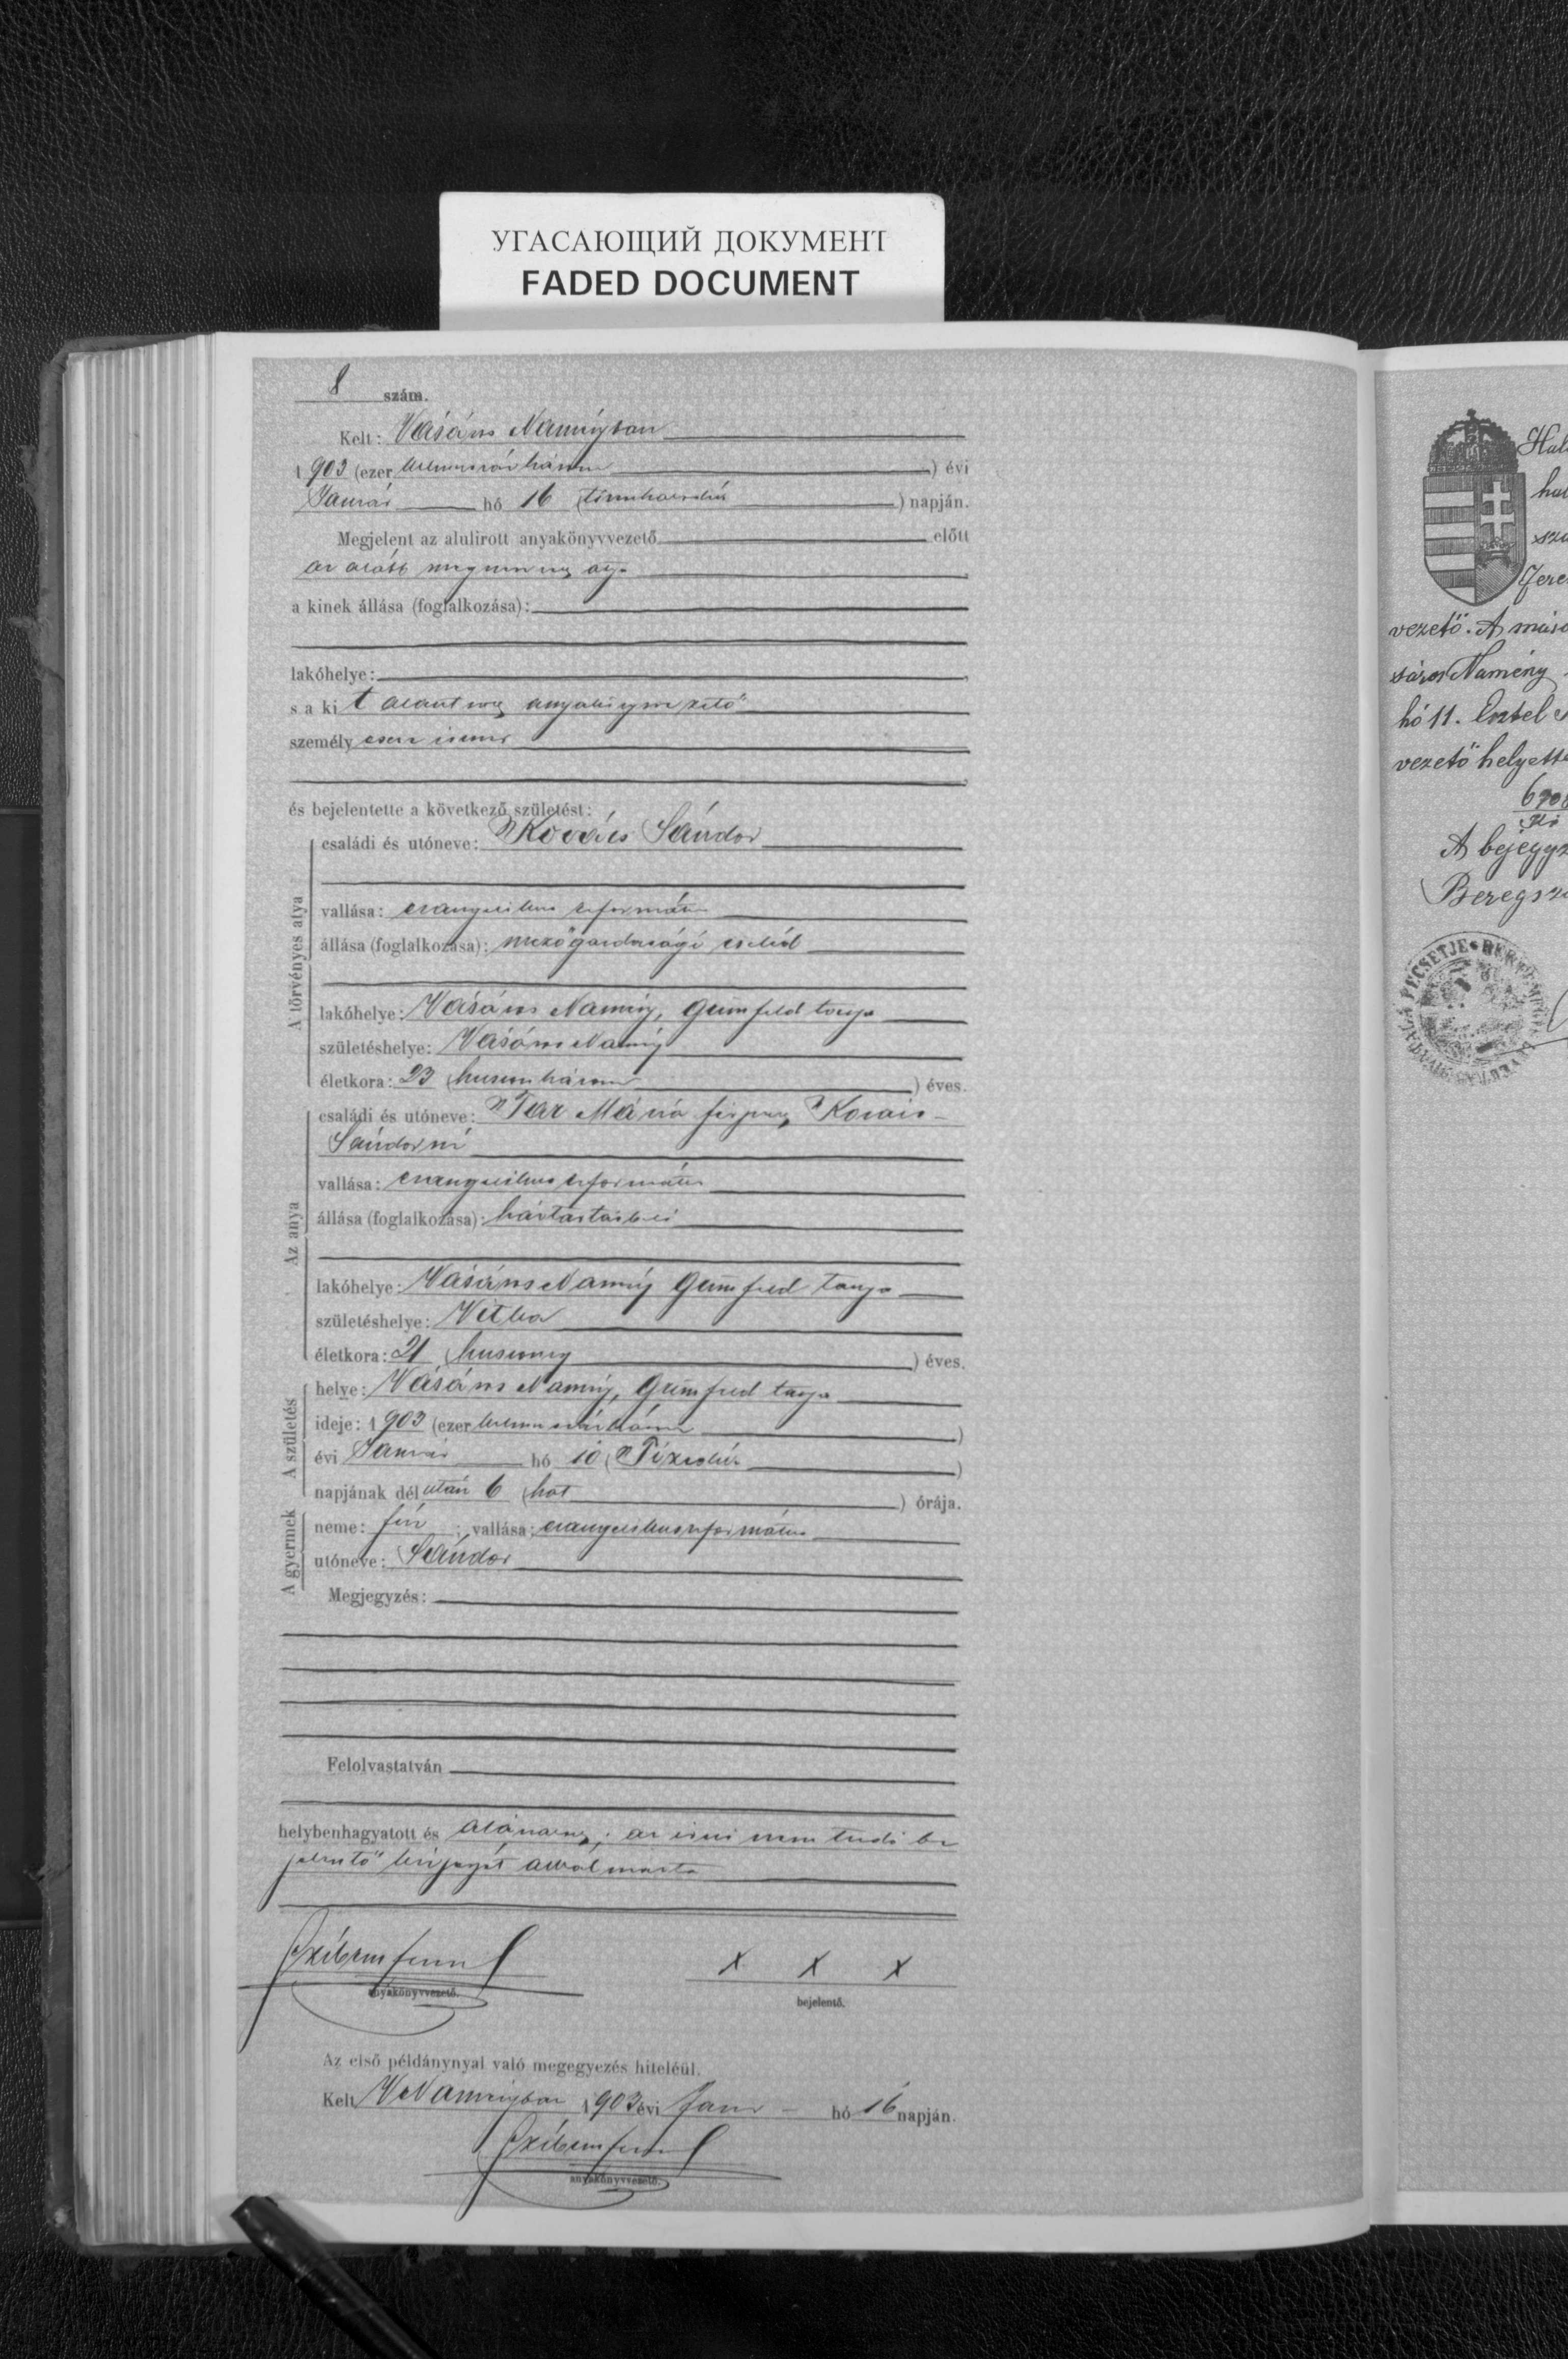 УГАСАЮЩИЙ ДОКУМЕНТ
FADED DOCUMENT
8 szám.
Kelt: Vásáros Naményban
1903 (ezer kilencszázhárom) évi
Január hó 16 (tizenhatodik) napján.
Megjelent az alulirott anyakönyvvezető előtt
az alább megnevezett atya
a kinek állása (foglalkozása):
lakóhelye:
s a kit alantirott anyakönyvvezető
személyesen ismer
és bejelentette a következő születést:
A törvényes atya
családi és utóneve: Kovács Sándor
vallása: evangelikus református
állása (foglalkozása): mezőgazdasági cseléd
lakóhelye: Vásáros Namény, Grünfeld tanya
születéshelye: Vásáros Namény
életkora: 23 (huszonhárom) éves.
Az anya
családi és utóneve: Tar Mária férjezett Kovács
Sándorné
vallása: evangelikus református
állása (foglalkozása): háztartásbeli
lakóhelye: Vásáros Namény Grünfeld tanya
születéshelye: Vitka
életkora: 21 (huszonegy) éves.
A születés
helye: Vásáros Namény, Grünfeld tanya
ideje: 1903 (ezer kilencszázhárom)
évi Január hó 10 (Tizedik)
napjának dél után 6 (hat) órája.
A gyermek
neme: fiú; vallása: evangelikus református
utóneve: Sándor
Megjegyzés:
Felolvastatván
helybenhagyatott és aláíratott; az írni nem tudó be
jelentő kézjegyét alkalmazta
anyakönyvvezető.
x x x
bejelentő.
Az első példánynyal való megegyezés hiteléül.
Kelt V Naményban 1903 évi Jan hó 16 napján.
anyakönyvvezető.
vezető. A
Namény
hó 11.
vezető helyette
A bejegyz